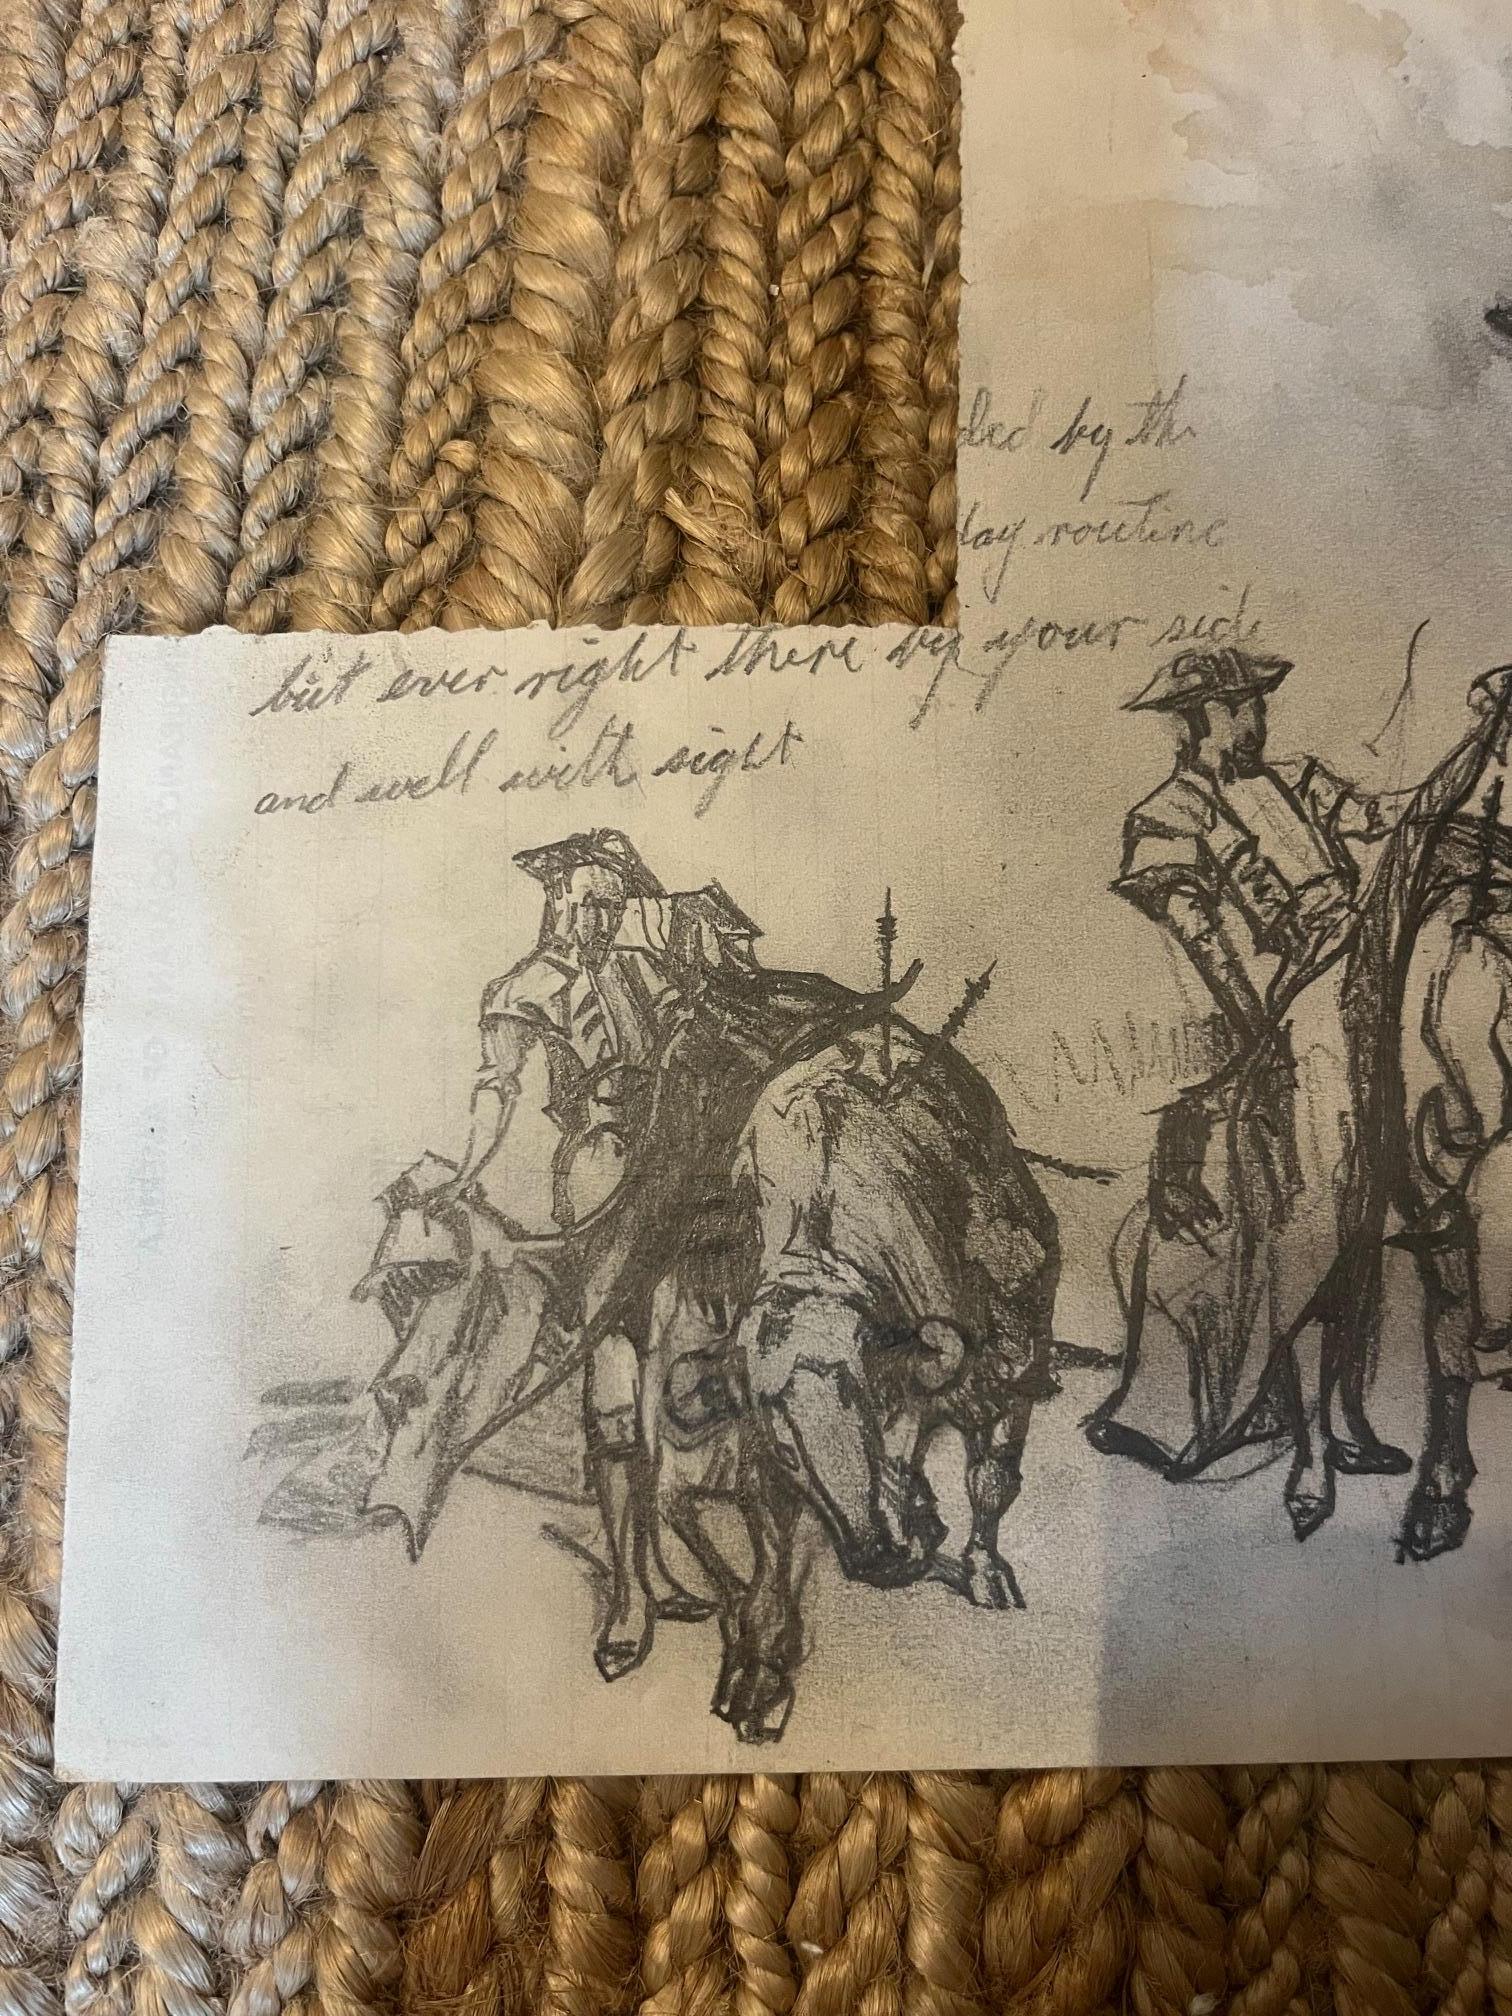 ded by th
day routine
but ever right there by your side
and well with sight